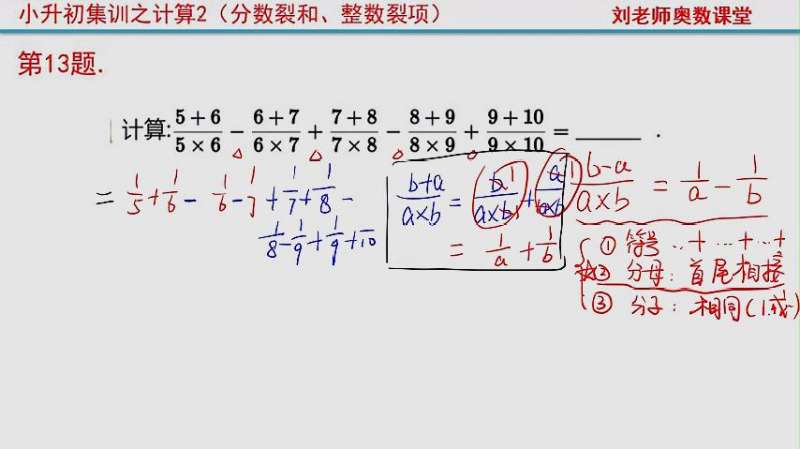 小升初集训之计算2（分数裂和、整数裂项）
刘老师奥数课堂
第13题.
计算: (5+6)/(5×6) − (6+7)/(6×7) + (7+8)/(7×8) − (8+9)/(8×9) + (9+10)/(9×10) = ______ .
= 1/5 + 1/6 − 1/6 − 1/7 + 1/7 + 1/8 −
1/8 − 1/9 + 1/9 + 1/10
(b+a)/(a×b) = b/(a×b) + a/(a×b)
= 1/a + 1/b
(b−a)/(a×b) = 1/a − 1/b
① 符号 ..+...+...+
② 分母: 首尾相接
③ 分子: 相同(1.或)